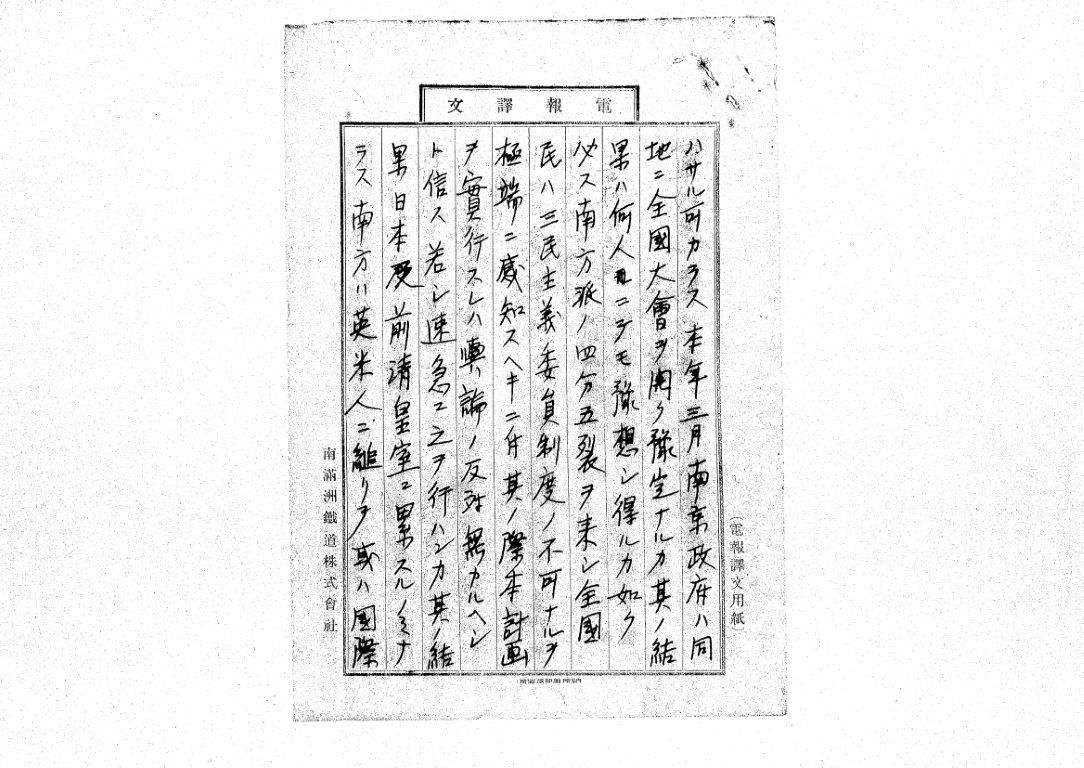 電報譯文
ハサル可カラス本年三月南京政府ハ同
地ニ全國大會ヲ開ク豫定ナルカ其ノ結
果ハ何人ニテモ豫想シ得ルカ如ク
必ス南方派ノ四分五裂ヲ来シ全國
民ハ三民主義委員制度ノ不可ナルヲ
極端ニ感知スヘキニ付其ノ際本計画
ヲ實行スレハ輿論ノ反対無カルヘシ
ト信ス若シ速急ニ之ヲ行ハンカ其ノ結
果日本及前清皇室ニ累スルノミナ
ラス南方ハ英米人ニ縋リテ或ハ國際
(電報譯文用紙)
南滿洲鐵道株式會社